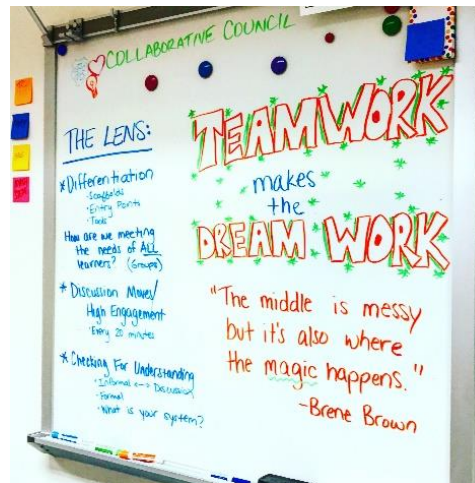 COLLABORATIVE COUNCIL
THE LENS:
* Differentiation
- Scaffolds
- Entry Points
- Tasks
How are we meeting
the needs of ALL
learners? (Groups)
* Discussion Moves/
High Engagement
- Every 20 minutes
* Checking For Understanding
- Informal <--> Discussion
- Formal
- What is your system?
TEAMWORK
makes
the
DREAM WORK
"The middle is messy
but it's also where
the magic happens."
-Brene Brown